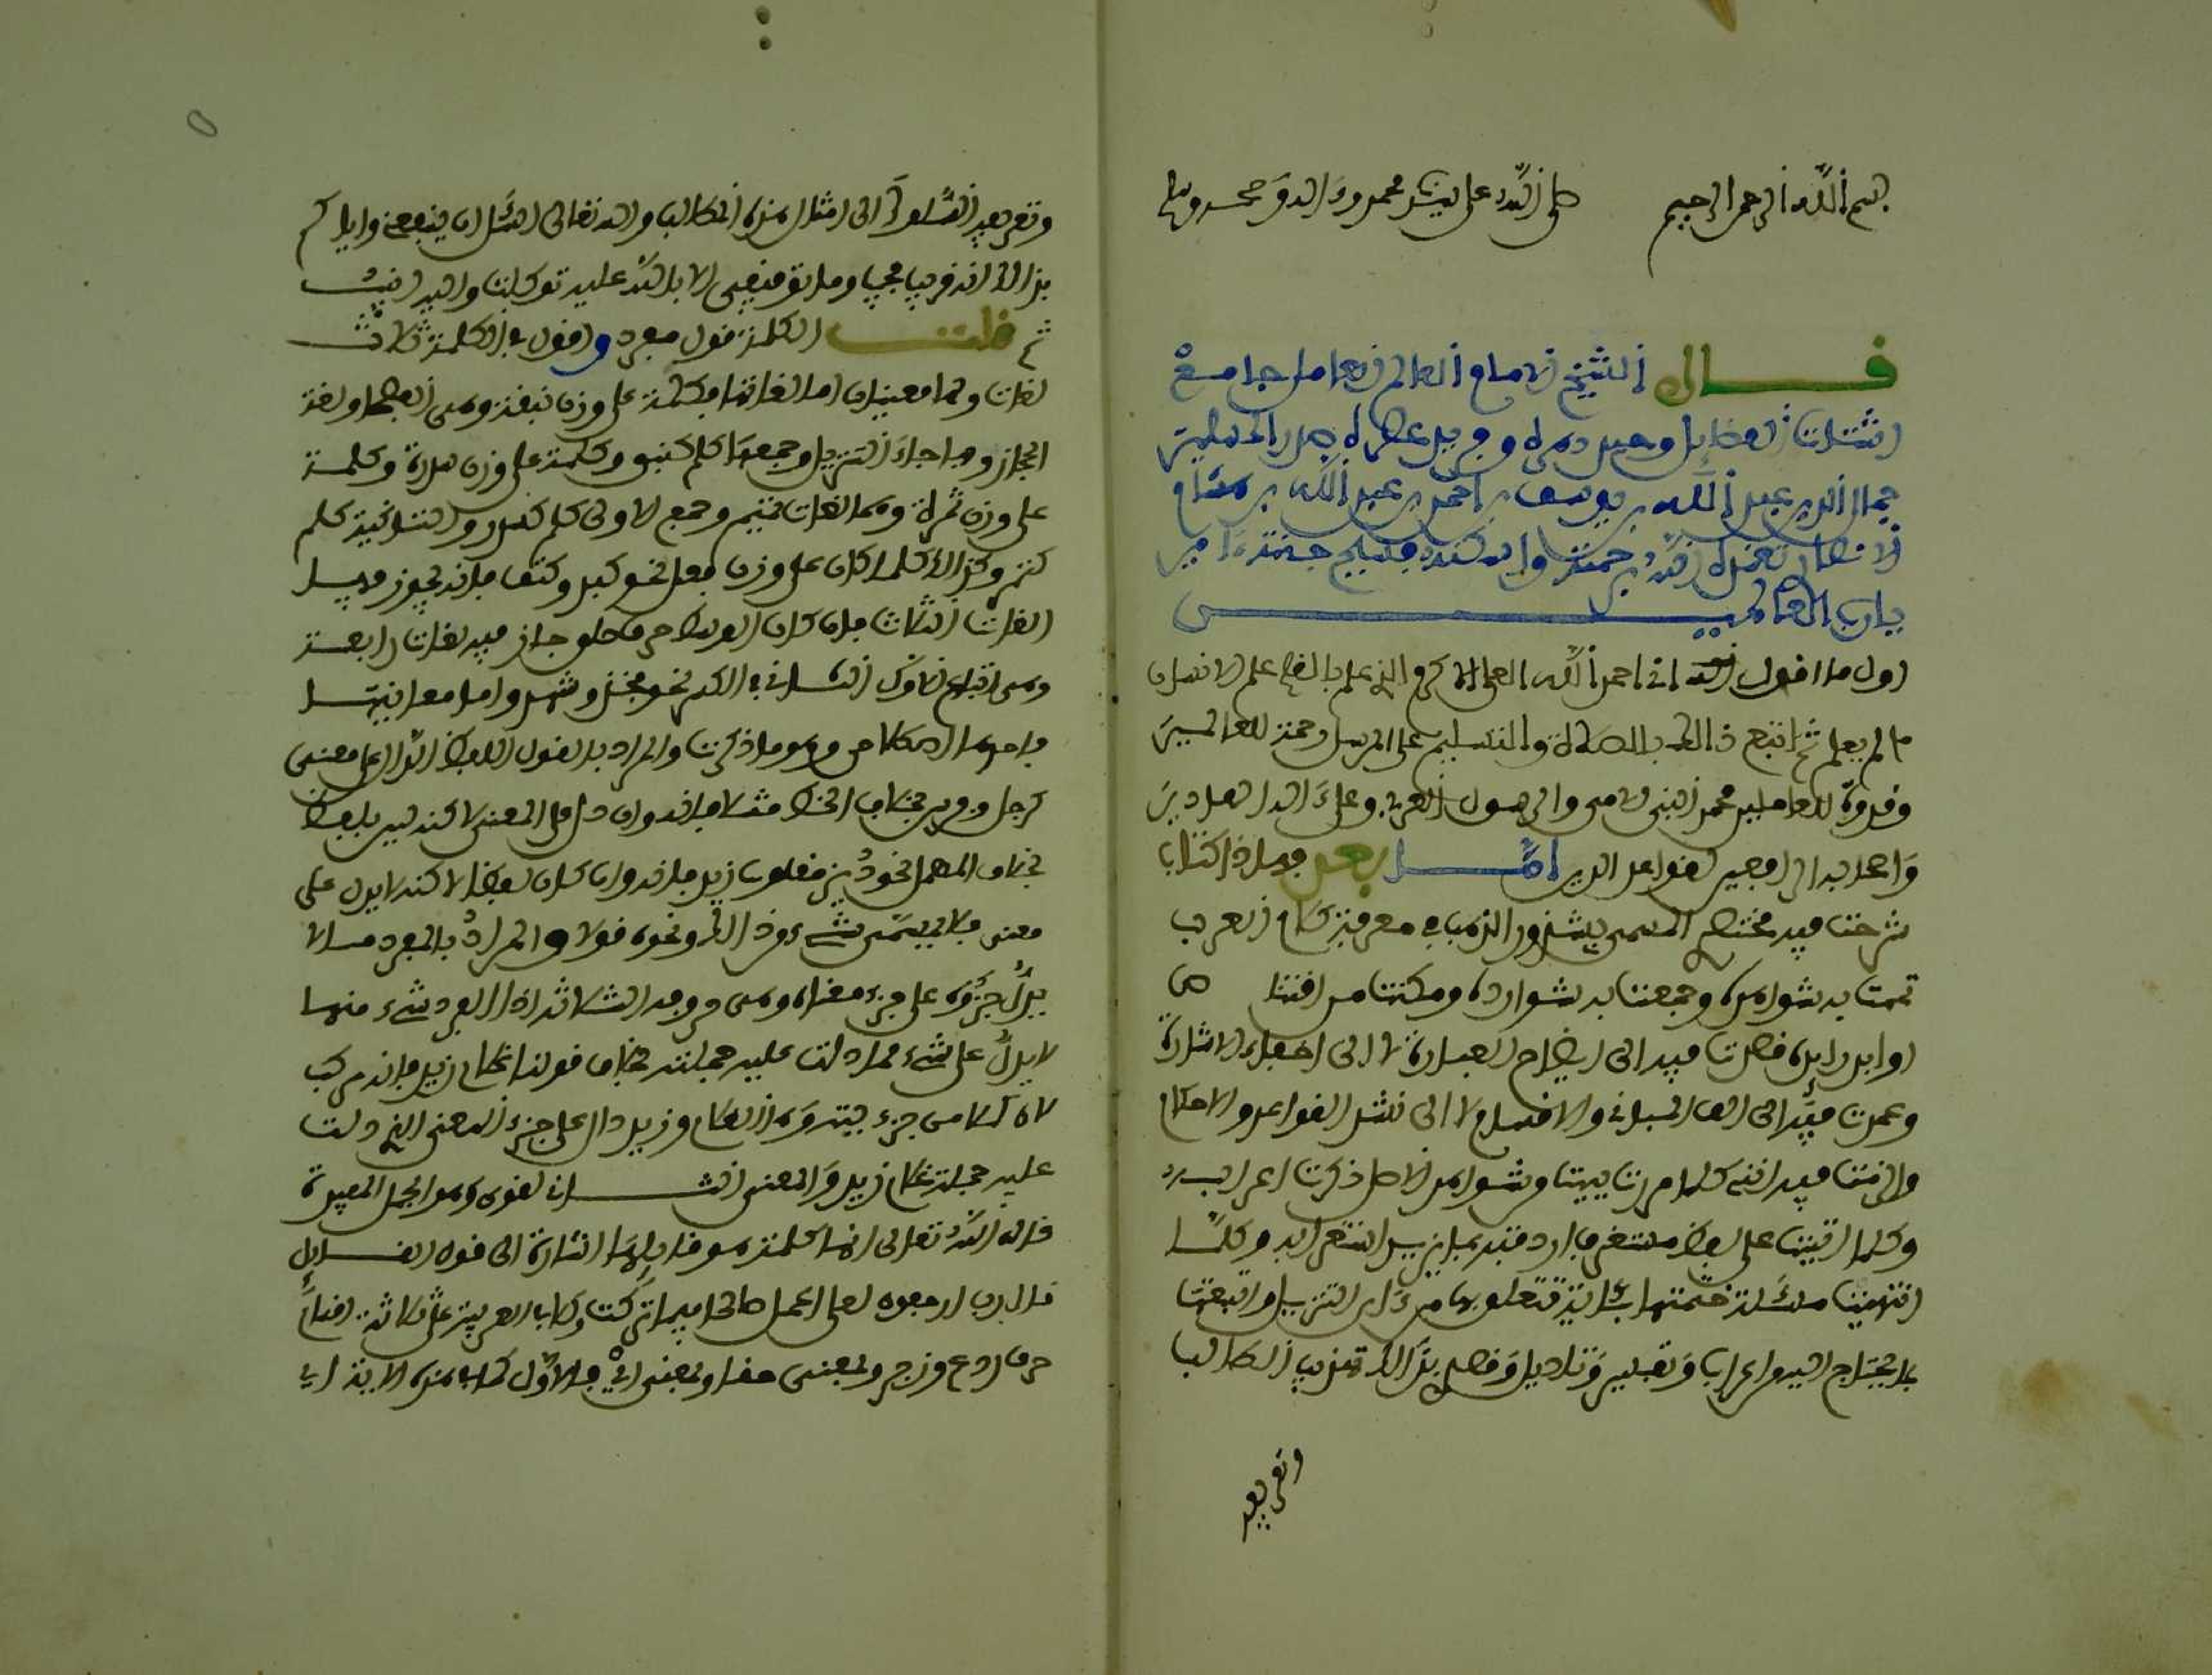 بسم الله الرحمن الرحيم صلى الله على سيدنا محمد وءاله وصحبه وسلم
قال الشيخ الامام العالم العامل جامع
اشتات الفضايل وحيد دهره وفريد عصره صدر المسلمين
جمال الدين عبد الله بن يوسف بن احمد بن عبد الله بن هشام
الانصاري تغمده الله برحمته واسكنه فسيح جنته ءامين
يارب العالمين
اول ما اقول انى احمد الله العلي الاكرم الذي علم بالقلم علم الانسان
ما لم يعلم ثم اتبع ذالك بالصلاة والتسليم على المرسل رحمة للعالمين
وقدوة للعاملين محمد النبي الامي والرسول العربي وعلى ءاله الهادين
وَاصحابه الرافعين لقواعد الدين امّا بعد فهاذا كتاب
شرحت فيه مختصري المسمى بشذور الذهب في معرفة كلام العرب
تممت به شواهده وجمعت به شوارده ومكنت من اقتناص
اوابده رايده قصدت فيه الى ايضاح العبارة لا الى اخفاء الاشارة
وعمدت فيه الى لف المباني والاقسام لا الى نشر القواعد والاحكام
والتزمت فيه انني كلما مررت ببيت من شواهد الاصل ذكرت اعرابه
وكلما اتيت على لفظ مستغرب اردفته بما يزيل استغرابه وكلما
انهيت مسئلة ختمتها بئاية تتعلق بها من ءاي التنزيل واتبعتها
بما يحتاج اليه من اعراب وتفسير وتاويل وقصدي بذالك تدريب الطالب
وتعريفه
وتعريفه السلوك الى امثال هذه المطالب والله تعالى اسئل ان ينفعني واياكم
بذالك انه قريب مجيب وما توفيقي الا بالله عليه توكلت واليه انيب
ثم قلت الكلمة قول مفرد واقول في الكلمة ثلاث
لغات ولها معنيان اما لغاتها فكلمة على وزن نبقة وهي الفصحى ولغة
الحجاز وبها جاء التنزيل وجمعها كلم كنبق وكلمة على وزن سدرة وكلمة
على وزن تمرة وهما لغتا تميم وجمع الاولى كلم كسدر والثانية كلم
كتمر وكذالك كلما كان على وزن فعل نحو كبد وكتف فانه يجوز فيه
اللغات الثلاث فان كان الوسط حرف حلق جاز فيه لغة رابعة
وهي اتباع الاول للثاني في الكسر نحو فخذ وشهد واما معانيها
فاحدهما اصطلاحي وهو ما ذكرت والمراد بالقول اللفظ الدال على معنى
كرجل وفرس بخلاف الخط مثلا فانه وان دل على المعنى لاكنه ليس بلفظ
بخلاف المهمل نحو ديز مقلوب زيد فانه وان كان لفظا لاكنه لا يدل على
معنى فلا يسمى شيء من ذالك ونحوه قولا والمراد بالمفرد ما لا
يدل جزؤه على جزء معناه وهي حروفه الثلاثة اذا افرد شيء منها
لا يدل على شيء مما دلت عليه جملته بخلاف قولنا غلام زيد فانه مركب
لان كلا من جزءيه وهما غلام وزيد دال على جزء المعنى الذي دلت
عليه جملة غلام زيد والمعنى الثاني لغوي وهو الجمل المفيدة
قال الله تعالى انها كلمة هو قايلها اشارة الى قول القايل
قال رب ارجعون لعلي اعمل صالحا فيما تركت وكلا في العربية على ثلاثة اقسام
حرف ردع وزجر وبمعنى حقا وبمعنى اي فالاول كما في هذه الاية اي